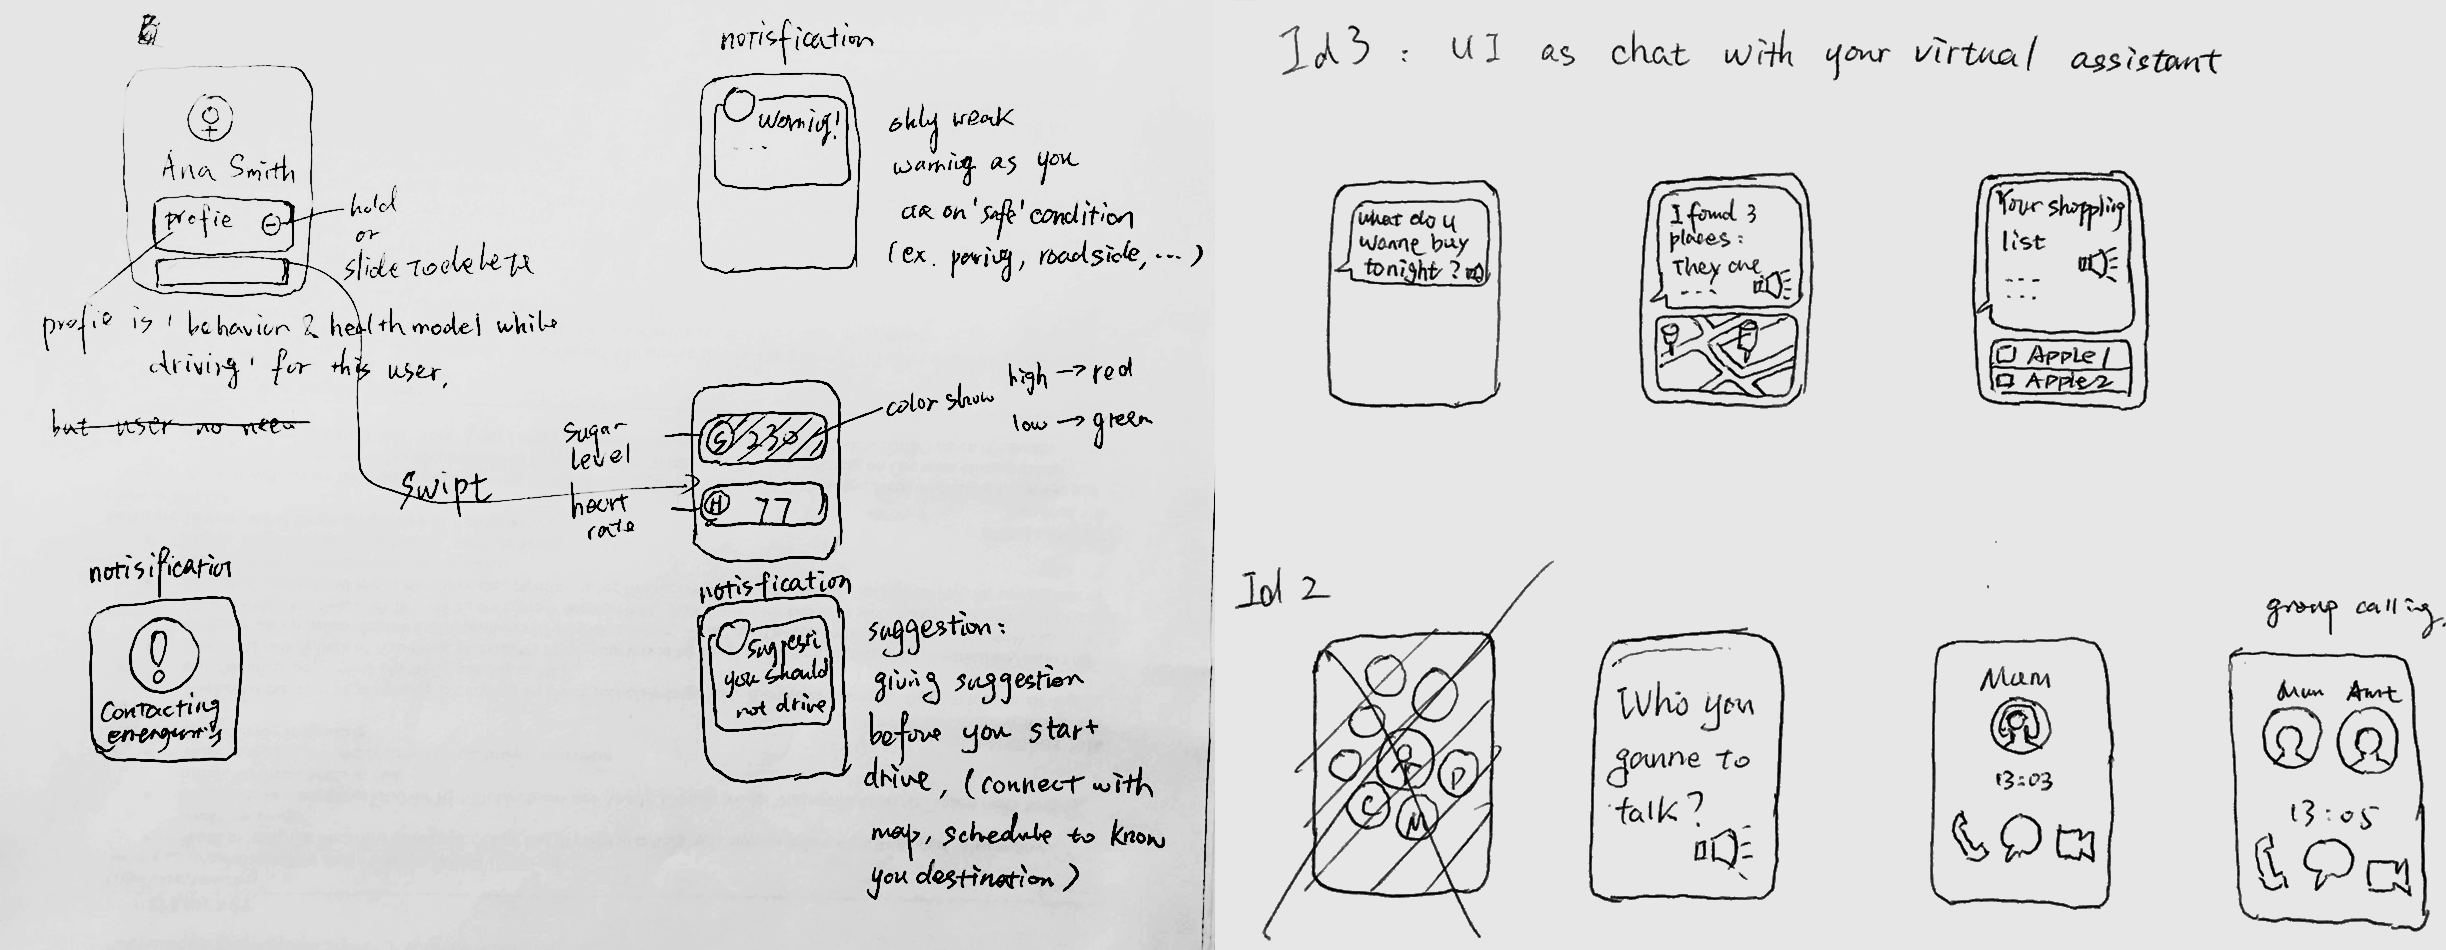 notisfication
Warnig!
---
only weak
warnig as you
are on 'safe' condition
(ex. paring, roadside, ...)
Ana Smith
profie
hold
or
slide to delete
profie is 'behavior & health model while
driving' for this user.
but user no need
Swipt
sugar
level
S 230
heart
rate
H 77
color show
high → red
low → green
notisification
!
Contacting
notisfication
Suggesti
you should
not drive
suggestion:
giving suggestion
before you start
drive, (connect with
map, schedule to know
you destination)
Id3 : UI as chat with your virtual assistant
what do u
wanne buy
tonight?
I found 3
places:
They are
---
Your shopping
list
---
---
Apple1
Apple2
Id 2
P
C
M
Who you
ganne to
talk?
Mum
13:03
group calling.
Mum Aunt
13:05